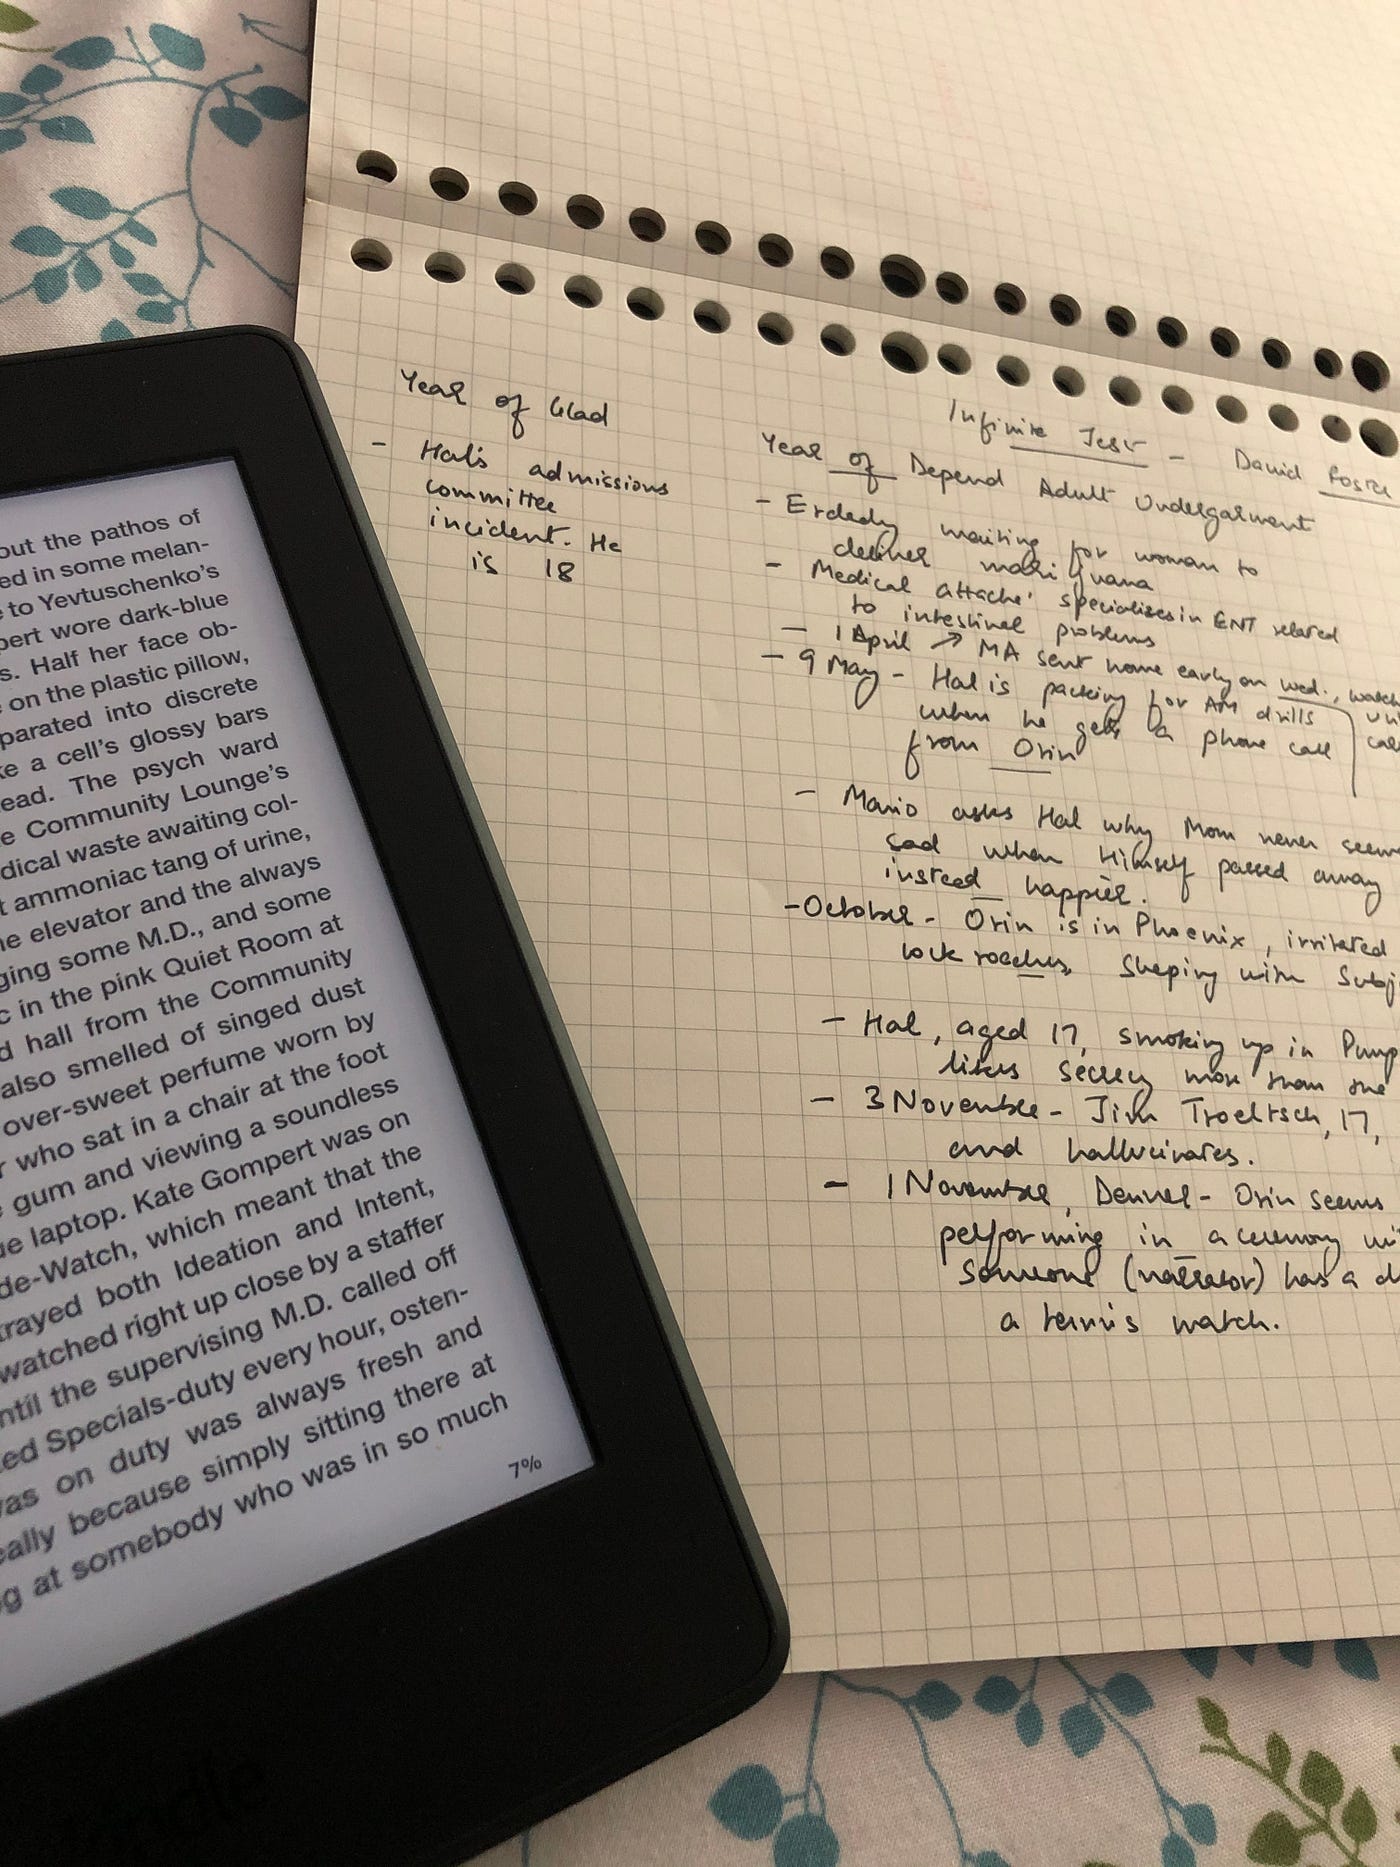 out the pathos of
ed in some melan-
e to Yevtuschenko's
pert wore dark-blue
s. Half her face ob-
on the plastic pillow,
parated into discrete
ke a cell's glossy bars
ead. The psych ward
e Community Lounge's
dical waste awaiting col-
t ammoniac tang of urine,
ne elevator and the always
ging some M.D., and some
c in the pink Quiet Room at
d hall from the Community
also smelled of singed dust
over-sweet perfume worn by
r who sat in a chair at the foot
gum and viewing a soundless
ue laptop. Kate Gompert was on
de-Watch, which meant that the
trayed both Ideation and Intent,
watched right up close by a staffer
ntil the supervising M.D. called off
ed Specials-duty every hour, osten-
vas on duty was always fresh and
eally because simply sitting there at
g at somebody who was in so much
7%
Year of Glad
- Hal's admissions
committee
incident. He
is 18
Infinite Jest - David Foste
Year of Depend Adult Undergarment
- Erdedy waiting for woman to
deliver marijuana
- Medical attache' specialises in ENT related
to intestinal problems
- 1 April → MA sent home early on wed., watch
- 9 May - Hal is packing for AM drills
when he gets a phone call
from Orin
- Mario asks Hal why Mom never seem
sad when Himself passed away
instead happier.
- October - Orin is in Phoenix, irritated
cock roaches. Sleeping with Subj
- Hal, aged 17, smoking up in Pump
likes secrecy more than the
- 3 November - Jim Troeltsch, 17,
and hallucinates.
- 1 November, Denver - Orin seems
performing in a ceremony wi
Someone (narrator) has a d
a tennis match.